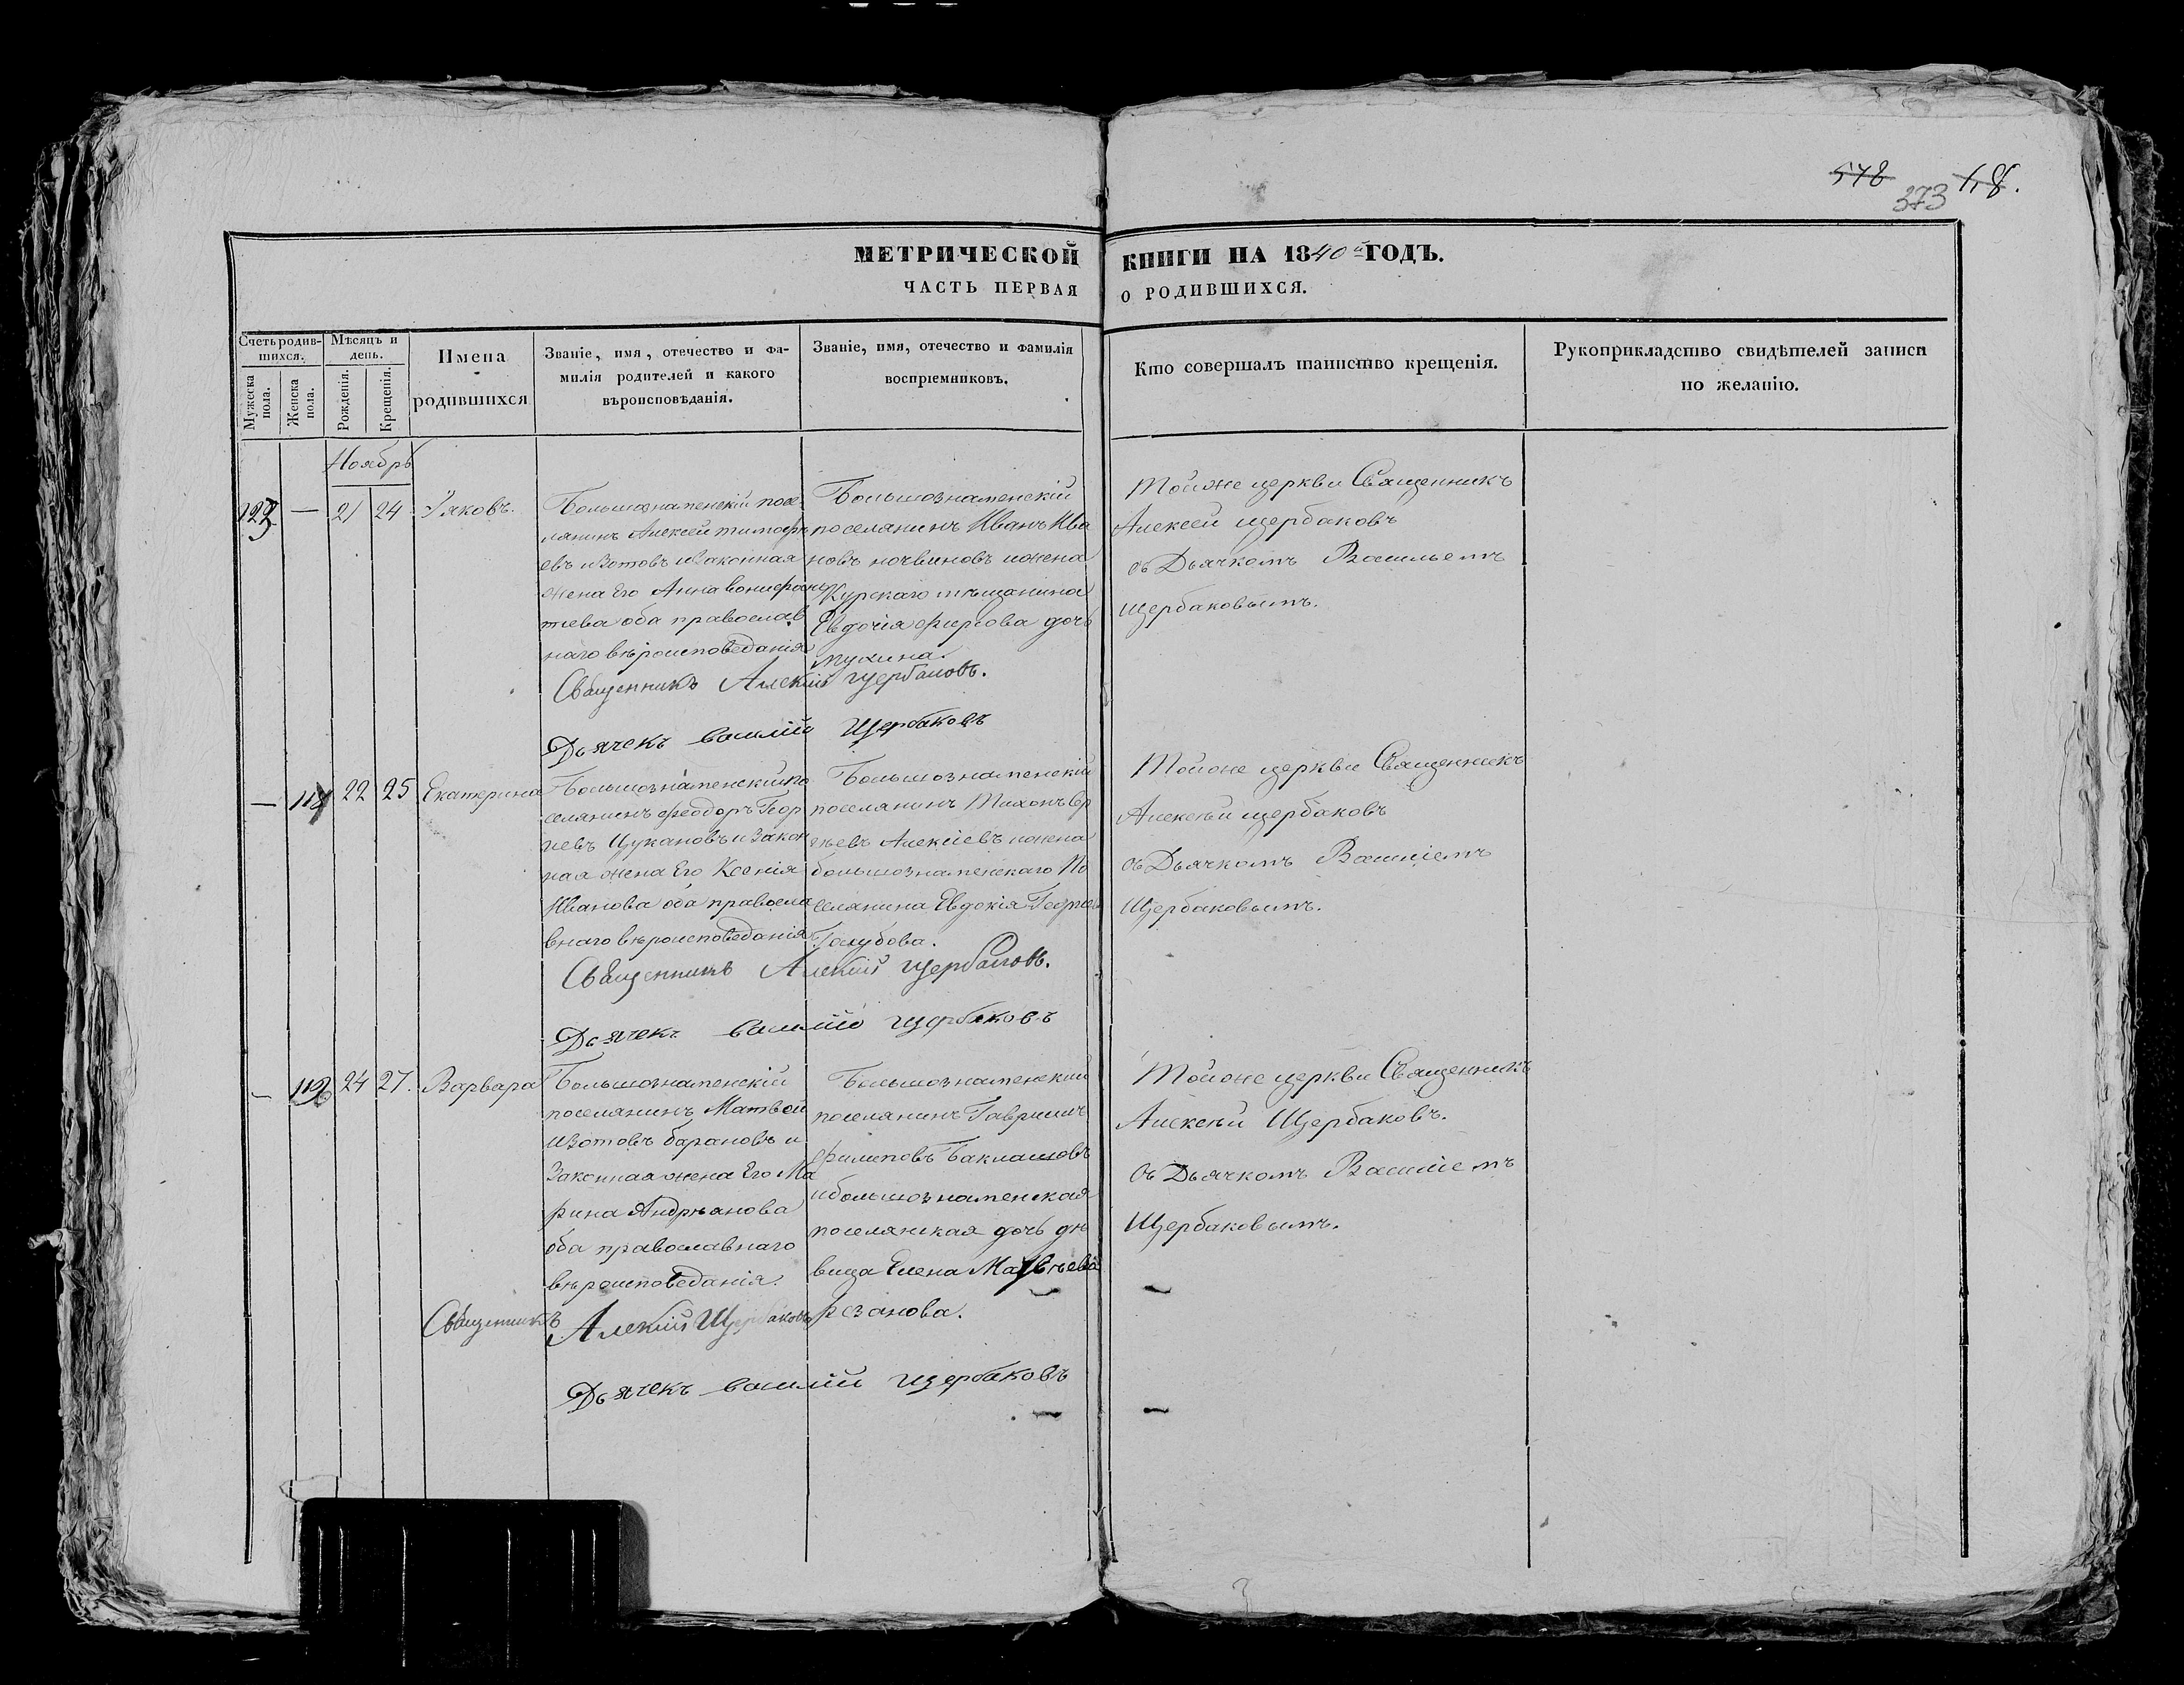 578 373 118.
МЕТРИЧЕСКОЙ КНИГИ НА 1840й ГОДЪ.
ЧАСТЬ ПЕРВАЯ О РОДИВШИХСЯ.
Счетъ родившихся.
Мужеска пола.
Женска пола.
Мѣсяцъ и день.
Рожденія.
Крещенія.
Имена родившихся
Званіе, имя, отечество и фамилія родителей и какого вѣроисповѣданія.
Званіе, имя, отечество и фамилія воспріемниковъ.
Кто совершалъ таинство крещенія.
Рукоприкладство свидѣтелей записи по желанію.
Ноябрь
— 21 24 Іаковъ.
Большознаменскій посе-
лянинъ Алексей тимофѣ
евъ изотовъ изаконная
жена Его Анна вонифань
тиева оба православ
наго вѣроисповеданія
Большознаменскій
поселянинъ Иванъ Ива
новъ ночвиновъ ижена
Курскаго мѣщанина
Евдокія фирсова дочь
мухина.
Тойже церкви Священникъ
Алексей щербаковъ
съ Дьячкомъ Васильемъ
щербаковымъ.
Священникъ Алексій Щербаковъ.
Дьячекъ василій Щербаковъ
— 22 25 Екатерина
Большознаменскій по
селянинъ феодоръ Геор
гиевъ Цукановъ и Закон
ная жена Его Ксенія
Иванова оба правосла
внаго вѣроисповеданія
Большознаменскій
поселянинъ Тихонъ Сер
гѣевъ Алексіевъ ижена
большознаменскаго По
селянина Евдокія Георгіев
Голубова.
Тойже церкви Священникъ
Алексѣй щербаковъ
съ Дьячкомъ Василіемъ
Щербаковымъ.
Священникъ Алексій Щербаковъ.
Дьячекъ василій щербаковъ
— 24 27. Варвара
Большознаменскій
поселянинъ Матвей
изотовъ барановъ и
Законная жена Его Ма
рина Андрѣанова
оба православнаго
вѣроисповеданія.
Большознаменский
поселянинъ Гавриилъ
филиповъ Баклашовъ
ибольшознаменская
поселянская дочь дѣ
вица Елена Матвѣева
резанова.
Тойже церкви Священникъ
Алексѣй Щербаковъ.
съ Дьячкомъ Василіемъ
Щербаковымъ.
Священникъ Алексій Щербаковъ
Дьячекъ василій щербаковъ